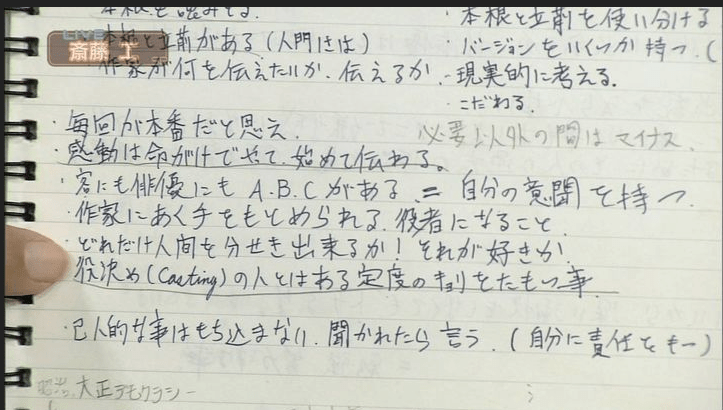 本根を踏みする
・本根と立前を使い分ける
LIVE
斎藤 工
本根と立前がある(人間には)
・バージョンをいくつか持つ.(
作家が何を伝えたいか.伝えるか.
-現実的に考える.
・こだわる.
・毎回が本番だと思え.
必要以外の間はマイナス.
・感動は命がけでやって.始めて伝わる。
・客にも俳優にも A.B.C がある = 自分の意聞を持つ.
・作家にあく手をもとめられる.役者になること.
・どれだけ人間を分せき出来るか!それが好きか.
役決め(Casting)の人とはある定度のキョリをたもつ事
・己人的な事はもち込まない.聞かれたら言う.(自分に責任をもつ)
昭和.大正デモクラシー